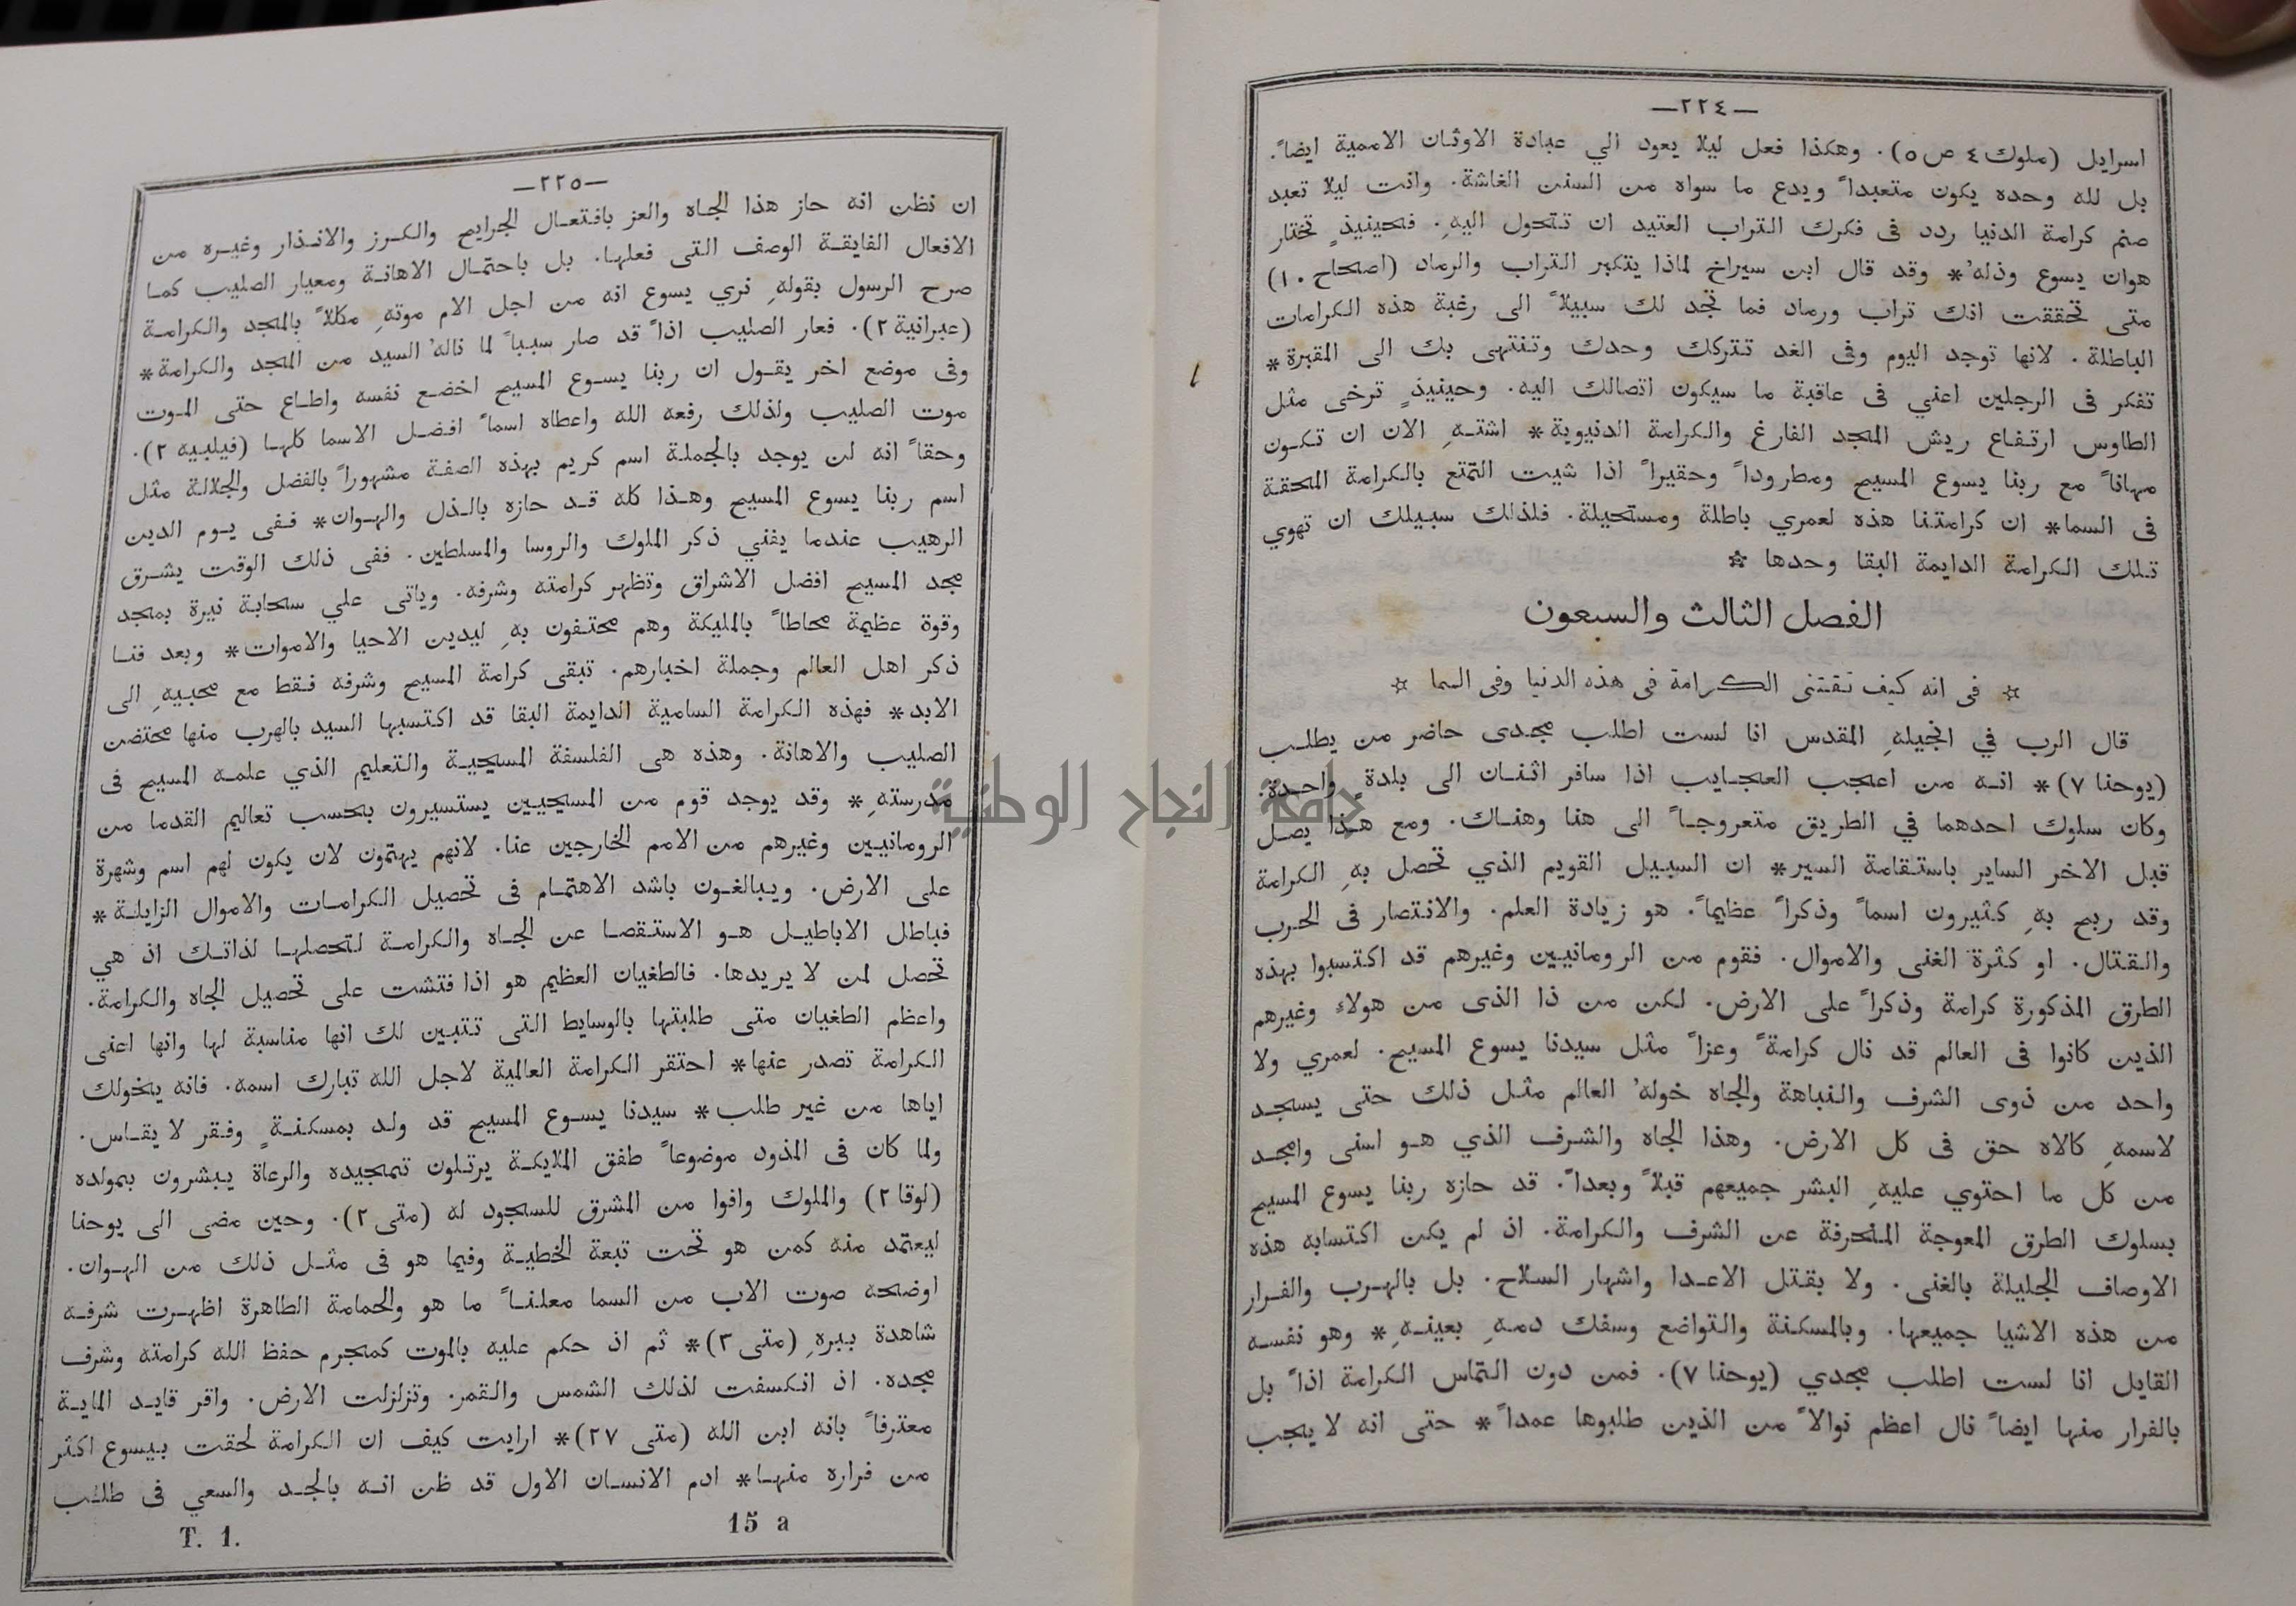 —٢٢٤—
اسرايل (ملوك٤ ص٥). وهكذا فعل ليلا يعود الي عبادة الاوثان الاممية ايضاً.
بل لله وحده يكون متعبداً ويدع ما سواه من السنن الغاشة. وانت ليلا تعبد
صنم كرامة الدنيا ردد فى فكرك التراب العتيد ان تتحول اليهِ. فحينيذٍ تختار
هوان يسوع وذله' * وقد قال ابن سيراخ لماذا يتكبر التراب والرماد (اصحاح ١٠)
متى تحققت انك تراب ورماد فما تجد لك سبيلاً الى رغبة هذه الكرامات
الباطلة. لانها توجد اليوم وفى الغد تتركك وحدك وتنتهى بك الى المقبرة *
تفكر فى الرجلين اعني فى عاقبة ما سيكون اتصالك اليه. وحينيذٍ ترخى مثل
الطاوس ارتفاع ريش المجد الفارغ والكرامة الدنيوية * اشتهِ الان ان تكون
مهاناً مع ربنا يسوع المسيح ومطروداً وحقيراً اذا شيت التمتع بالكرامة المحقة
فى السما * ان كرامتنا هذه لعمري باطلة ومستحيلة. فلذلك سبيلك ان تهوي
تلك الكرامة الدايمة البقا وحدها ☆
الفصل الثالث والسبعون
☆ فى انه كيف تقتنى الكرامة فى هذه الدنيا وفى السما ☆
قال الرب في انجيلهِ المقدس انا لست اطلب مجدى حاضر من يطلب
(يوحنا ٧) * انه من اعجب العجايب اذا سافر اثنان الى بلدةٍ واحدة.
وكان سلوك احدهما في الطريق متعروجاً الى هنا وهناك. ومع هذا يصل
قبل الاخر الساير باستقامة السير * ان السبيل القويم الذي تحصل بهِ الكرامة
وقد ربح بهِ كثيرون اسماً وذكراً عظيماً. هو زيادة العلم. والانتصار فى الحرب
والقتال. او كثرة الغنى والاموال. فقوم من الرومانيين وغيرهم قد اكتسبوا بهذه
الطرق المذكورة كرامة وذكراً على الارض. لكن من ذا الذى من هولاء وغيرهم
الذين كانوا فى العالم قد نال كرامةً وعزاً مثل سيدنا يسوع المسيح. لعمري ولا
واحد من ذوى الشرف والنباهة والجاه خوله' العالم مثل ذلك حتى يسجد
لاسمهِ كالاه حق فى كل الارض. وهذا الجاه والشرف الذي هو اسنى وامجد
من كل ما احتوي عليهِ البشر جميعهم قبلاً وبعداً. قد حازه ربنا يسوع المسيح
بسلوك الطرق المعوجة المنحرفة عن الشرف والكرامة. اذ لم يكن اكتسابه هذه
الاوصاف الجليلة بالغنى. ولا بقتل الاعدا واشهار السلاح. بل بالهرب والفرار
من هذه الاشيا جميعها. وبالمسكنة والتواضع وسفك دمهِ بعينهِ * وهو نفسه
القايل انا لست اطلب مجدي (يوحنا ٧). فمن دون التماس الكرامة اذاً بل
بالفرار منها ايضاً نال اعظم نوالاً من الذين طلبوها عمداً * حتى انه لا يجب
—٢٢٥—
ان نظن انه حاز هذا الجاه والعز بافتعال الجرايح والكرز والانذار وغيره من
الافعال الفايقة الوصف التى فعلها. بل باحتمال الاهانة ومعيار الصليب كما
صرح الرسول بقولهِ نري يسوع انه من اجل الام موتهِ مكللاً بالمجد والكرامة
(عبرانية ٢). فعار الصليب اذاً قد صار سبباً لما ناله' السيد من المجد والكرامة *
وفى موضع اخر يقول ان ربنا يسوع المسيح اخضع نفسه واطاع حتى الموت
موت الصليب ولذلك رفعه الله واعطاه اسماً افضل الاسما كلها (فيلبيه ٢).
وحقاً انه لن يوجد بالجملة اسم كريم بهذه الصفة مشهوراً بالفضل والجلالة مثل
اسم ربنا يسوع المسيح وهذا كله قد حازه بالذل والهوان * ففى يوم الدين
الرهيب عندما يفني ذكر الملوك والروسا والمسلطين. ففى ذلك الوقت يشرق
مجد المسيح افضل الاشراق وتظهر كرامته وشرفه. وياتى علي سحابة نيرة بمجد
وقوة عظيمة محاطاً بالمليكة وهم محتفون بهِ ليدين الاحيا والاموات * وبعد فنا
ذكر اهل العالم وجملة اخبارهم. تبقى كرامة المسيح وشرفه فقط مع محبيهِ الى
الابد * فهذه الكرامة السامية الدايمة البقا قد اكتسبها السيد بالهرب منها محتضن
الصليب والاهانة. وهذه هى الفلسفة المسيحية والتعليم الذي علمه المسيح فى
مدرستهِ * وقد يوجد قوم من المسيحيين يستسيرون بحسب تعاليم القدما من
الرومانيين وغيرهم من الامم الخارجين عنا. لانهم يهتمون لان يكون لهم اسم وشهرة
على الارض. ويبالغون باشد الاهتمام فى تحصيل الكرامات والاموال الزايلة *
فباطل الاباطيل هو الاستقصا عن الجاه والكرامة لتحصلها لذاتك اذ هي
تحصل لمن لا يريدها. فالطغيان العظيم هو اذا فتشت على تحصيل الجاه والكرامة.
واعظم الطغيان متى طلبتها بالوسايط التى تتبين لك انها مناسبة لها وانها اعنى
الكرامة تصدر عنها * احتقر الكرامة العالمية لاجل الله تبارك اسمه. فانه يخولك
اياها من غير طلب * سيدنا يسوع المسيح قد ولد بمسكنةٍ وفقر لا يقاس.
ولما كان فى المذود موضوعاً طفق الملايكة يرتلون تمجيده والرعاة يبشرون بمولده
(لوقا ٢) والملوك وافوا من المشرق للسجود له (متى ٢). وحين مضى الى يوحنا
ليعتمد منه كمن هو تحت تبعة الخطية وفيما هو فى مثل ذلك من الهوان.
اوضحه صوت الاب من السما معلناً ما هو والحمامة الطاهرة اظهرت شرفه
شاهدة ببرهِ (متى ٣) * ثم اذ حكم عليه بالموت كمجرم حفظ الله كرامته وشرف
مجده. اذ انكسفت لذلك الشمس والقمر. وتزلزلت الارض. واقر قايد الماية
معترفاً بانه ابن الله (متى ٢٧) * ارايت كيف ان الكرامة لحقت بيسوع اكثر
من فراره منها * ادم الانسان الاول قد ظن انه بالجد والسعي فى طلب
15 a
T. 1.
جامعة النجاح الوطنية